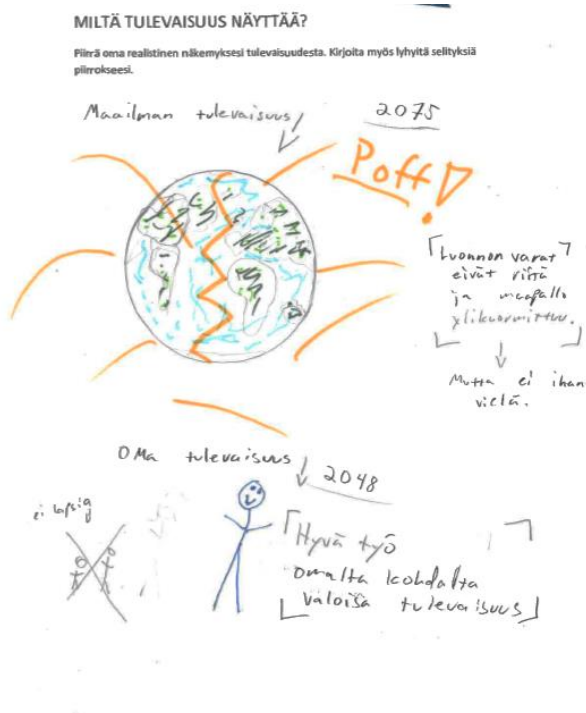 MILTÄ TULEVAISUUS NÄYTTÄÄ?
Piirrä oma realistinen näkemyksesi tulevaisuudesta. Kirjoita myös lyhyitä selityksiä
piirrokseesi.
Maailman tulevaisuus
2075
Poff!
Luonnon varat
eivät riitä
ja maapallo
ylikuormittuu.
Mutta ei ihan
vielä.
OMa tulevaisuus
2048
ei lapsia
Hyvä työ
omalta kohdalta
valoisa tulevaisuus